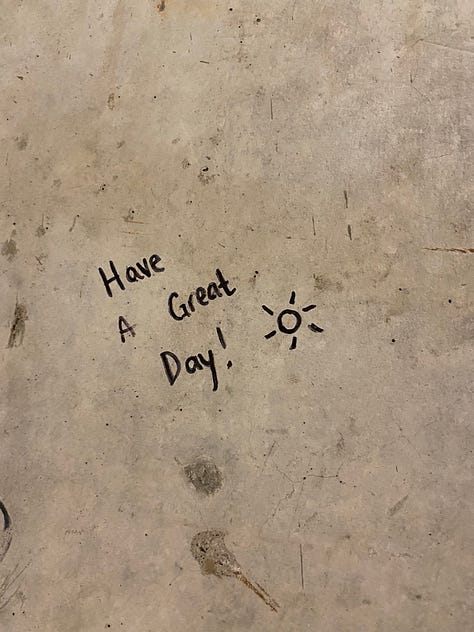 Have
A Great
Day!